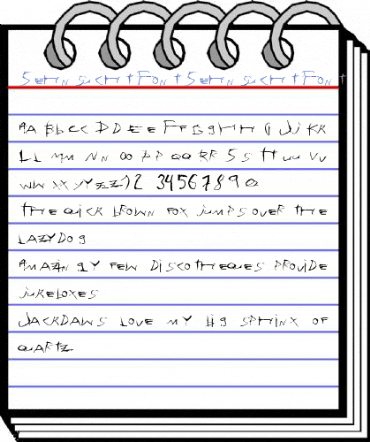 AA BbCC DDEEFFGgHH Ii JJ KK
LL MM NN OO PP QQ RR SS tt UU VV
WW XX YY ZZ 12 34567890
THE QICK BROWN FOX JUMPS OVER THE
LAZYDOG
AMAZINGLY FEW DISCOTHEQUES PROVIDE
JUKEBOXES
JACKDAWS LOVE MY BIG SPHINX OF
QUARTZ